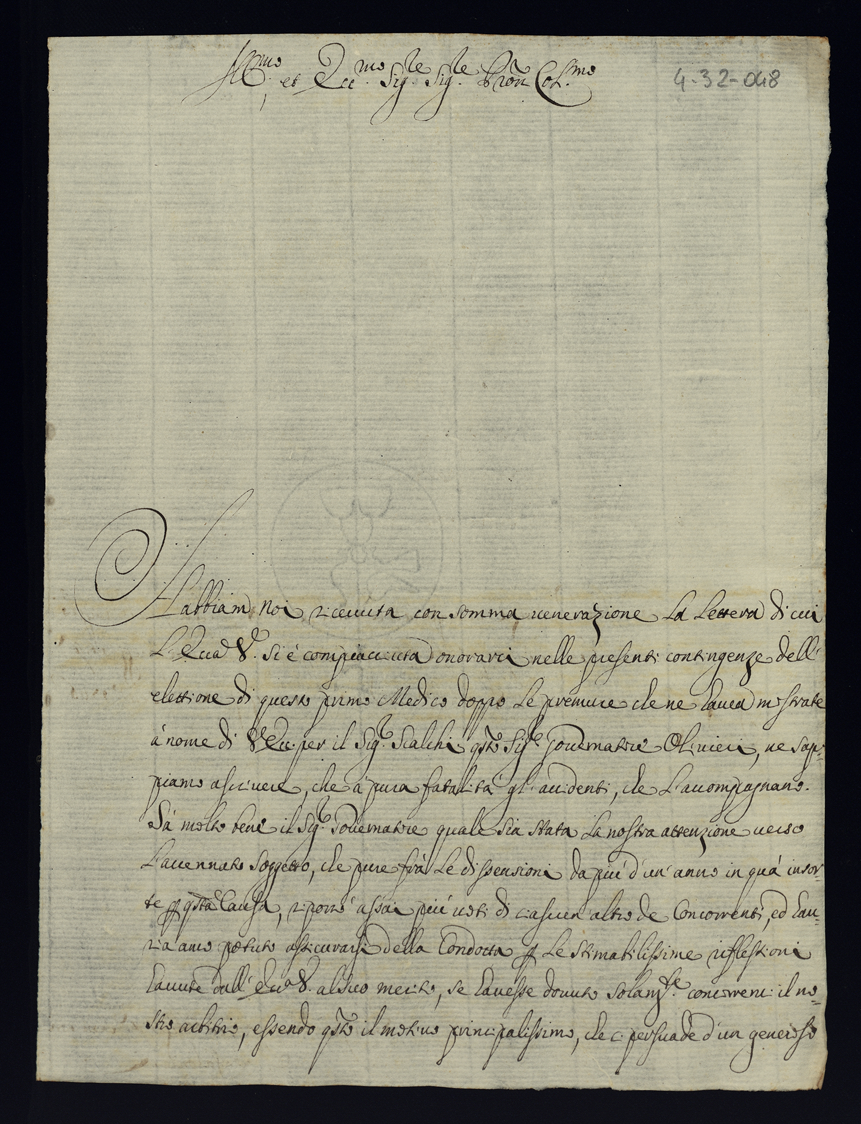 Ill.mo et Ecc.mo Sig.re Sig.re Pron Col.mo
4-32-048
Habbiam noi riceuuta con somma uenerazione la lettera di cui
L'Ecc.a V. si è compiacciuta onorarci nelle presenti contingenze dell'
elettione di questo primo Medico doppo le premure che ne hauea mostrate
à nome di V. Ecc. per il Sig.r Scalchi q.sto Sig.re Gouernatore Oliuieri, ne sap-
piamo ascriuere, che à pura fatalità gl'accidenti, che l'accompagnano.
Sà molto bene il Sig.r Gouernatore quale sia stata la nostra attenzione uerso
l'accennato soggetto, che pure frà le dissensioni da più d'un'anno in quà insor-
te p q.sta causa, riportò assai più uoti di ciascun altro de Concorrenti, ed hau-
riamo potuto assicurarsi della Condotta p le stimatilissime riflessioni
hauute dall'Ecc.a V. al suo merito, se hauesse douuto solam.te concorrerci il no-
stro arbitrio, essendo q.sto il motiuo principalissimo, che ci persuade d'un generoso